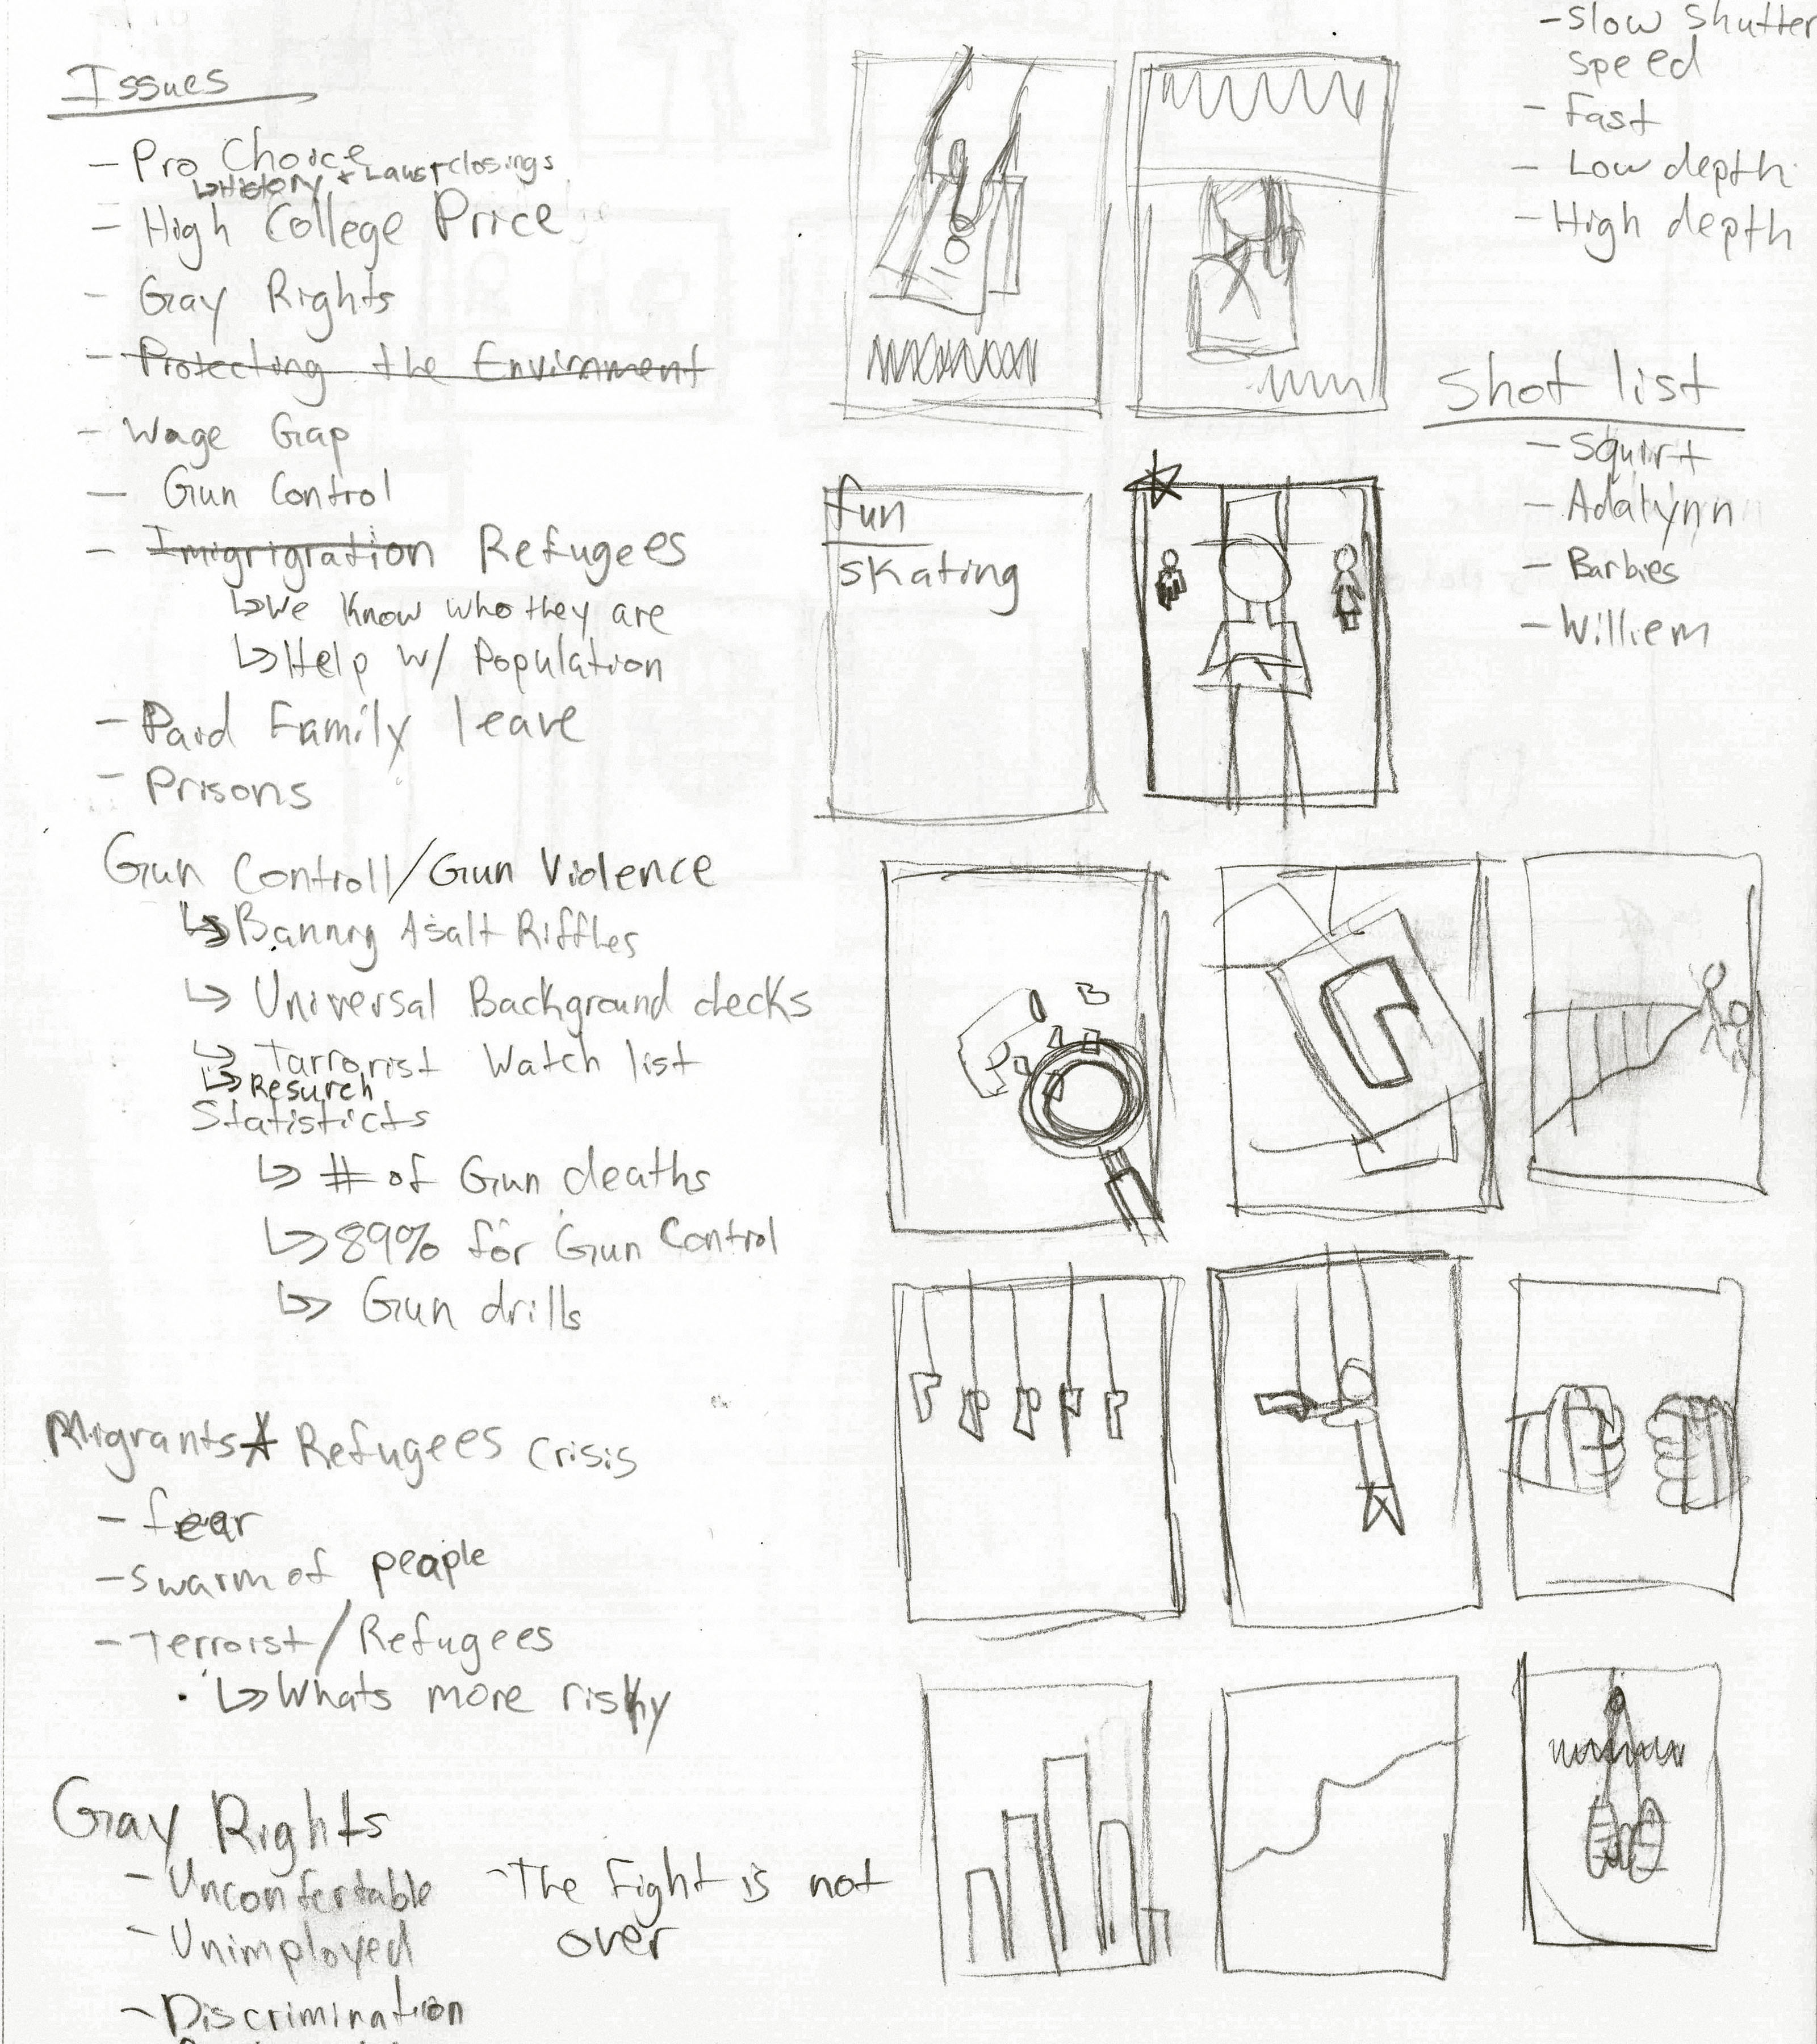 Issues
- Pro Choice
↳ History + Laws + closings
- High College Price
- Gay Rights
- Protecting the Envirnment
- Wage Gap
- Gun Control
- Imigrigration Refugees
↳ We Know who they are
↳ Help w/ Population
- Paid Family leave
- Prisons
Gun Controll/Gun Violence
↳ Banning Asalt Riffles
↳ Universal Background checks
↳ Tarrorist Watch list
↳ Resurch
Statisticts
↳ # of Gun deaths
↳ 89% for Gun Control
↳ Gun drills
Migrants Refugees Crisis
- fear
- swarm of people
- Terroist/Refugees
↳ Whats more risky
Gay Rights
- Unconfertable
- Unimployed
- Discrimination
- The Fight is not
over
fun
skating
B
- Slow Shutter
speed
- Fast
- Low depth
- High depth
Shot list
- Squirt
- Adalynn
- Barbies
- Williem